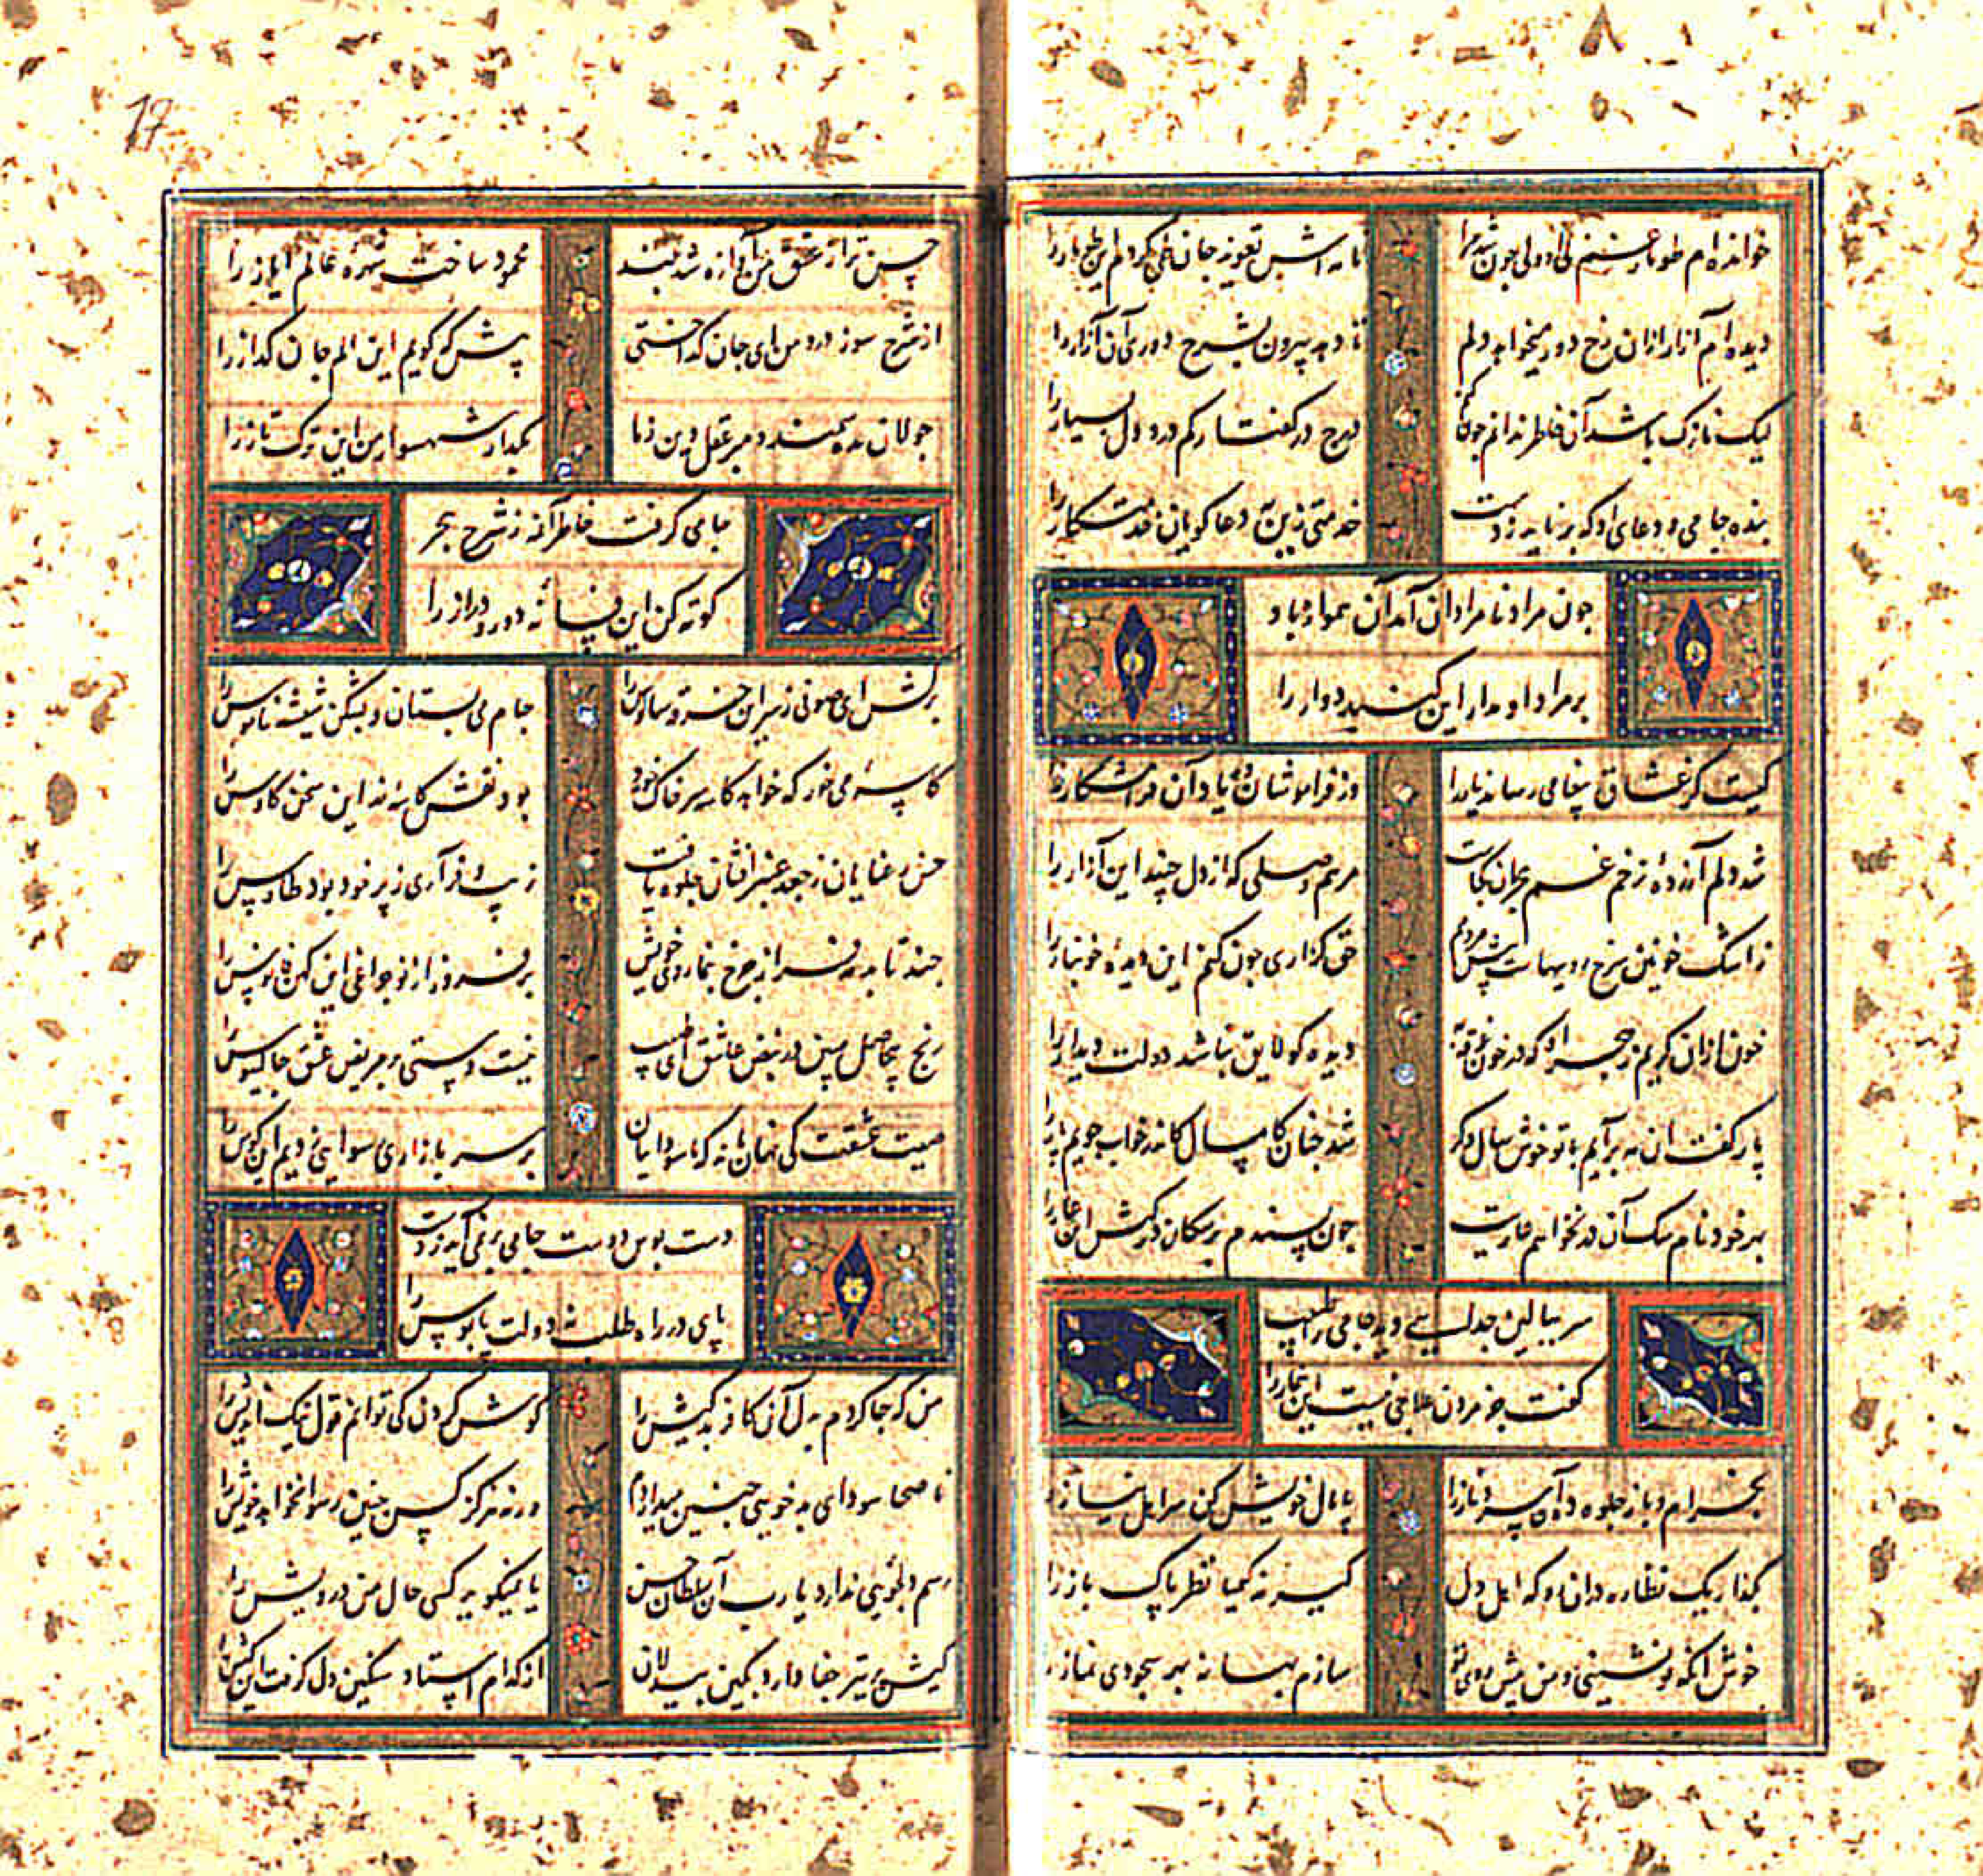 خوانده‌ام طومار
نامه‌اش تعویذ جان
دیده‌ام آزار ازان رخ دور میخواهد دلم
تا دهد بیرون بشرح دوری آن آزار را
لیک نازک باشد آن خاطر ندانم چون کنم
درج در گفتار کم درد دل بسیار را
بنده جامی و دعای او که برناید ز دست
خدمتی زین به دعاکویان خدمتکار را
چون مراد نامرادان آمد آن همواره باد
بر مراد او مدار این کنبد دوار را
کیست کز عشاق پیغامی رساند یار را
وز فراموشان دهد یاد آن فرامشکار را
شد دلم آزرده زخم غم هجران کجاست
مرهم وصلی که از دل چیند این آزار را
ز اشک خونین سرخ روییهاست پیش مردمم
حق کزاری چون کنم این دیدۀ خونبار را
خون ازان کریم ز هجر او که در خون غرقه به
دیده کو لایق نباشد دولت دیدار را
یار کفت ان مه برآیم با تو خوش سال دکر
شد چنان کامسال کاند خواب جویم یار را
بهر خود نام سک آن در نخواهم عاریت
چون پسندم بر سکان درکهش این عار را
سر ببالین جدایی دید جامی را طبیب
کفت جز مردن علاجی نیست این بیمار را
بخرام و باز جلوه ده آن سرو ناز را
پامال خویش کن سر اهل نیاز را
بکذار یک نظاره دران رو که اهل دل
کیرند کیمیا نظر پاک باز را
خوش آنکه تو نشینی و من پیش روی تو
سازم بهانه بهر سجودی نماز را
حسن ترا ز عشق من آوازه شد بلند
محمود ساخت شهره عالم ایاز را
از شرح سوز درد من ای جان کداختی
پیش که کویم این الم جان کداز را
جولان مده سمند و مبر عقل و دین ز ما
بکدار شهسوار من این ترک تاز را
جامی کرفت خاطر آن مه ز شرح هجر
کوته کن این فسانه دور و دراز را
برکش ای صوفی ز سر این خرقه سالوس را
جام می بستان و بشکن شیشه ناموس را
کاسه می خور که خواهد کاسه سر خاک خورد
بود نقش کاسه زر این سخن کاوس را
حسن رعنایان ز جعد عنبرافشان جلوه یافت
زیب و فر آری ز پر خود بود طاوس را
چند تابد مه ز سر از چرخ بنما روی خویش
برفروز از نو چراغی این کهن فانوس را
رنج بیحاصل مبین در نبض عاشق ای طبیب
نیست دستی بر مریض عشق جالینوس را
صیت عشقت کی نهان ماند که ما سوداییان
بر سر بازار رسوایی زدیم این کوس را
دست بوس دوست جامی برنمی آید ز دست
پای در راه طلب نه دولت پابوس را
من که جا کردم بدل آن کافر بدکیش را
کوش کردن کی توانم قول نیک اندیش را
ناصحا سودای بدخویی چنین میداردم
ورنه هرکز کس چنین رسوا نخواهد خویش را
رسم دلجویی ندارد یا رب آن سلطان حسن
یا نمیکوید کسی حال من درویش را
کیش پر تیر جفا دارد بکین بیدلان
از کدام استاد سنکین دل کرفت این کیش را